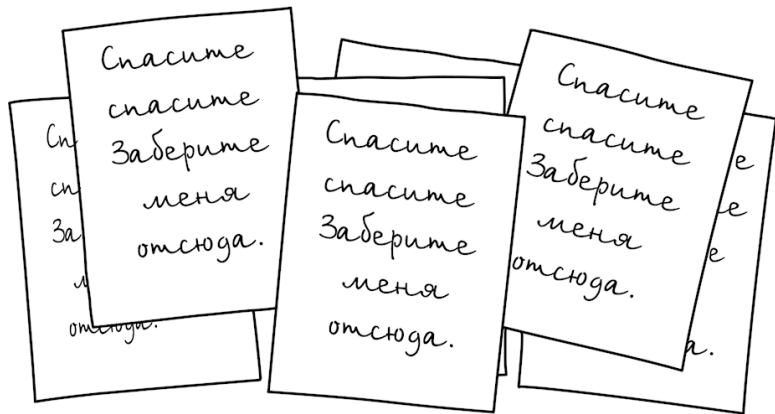 Спасите
спасите
Заберите
меня
отсюда.
Спасите
спасите
Заберите
меня
отсюда.
Спасите
спасите
Заберите
меня
отсюда.
отсюда.